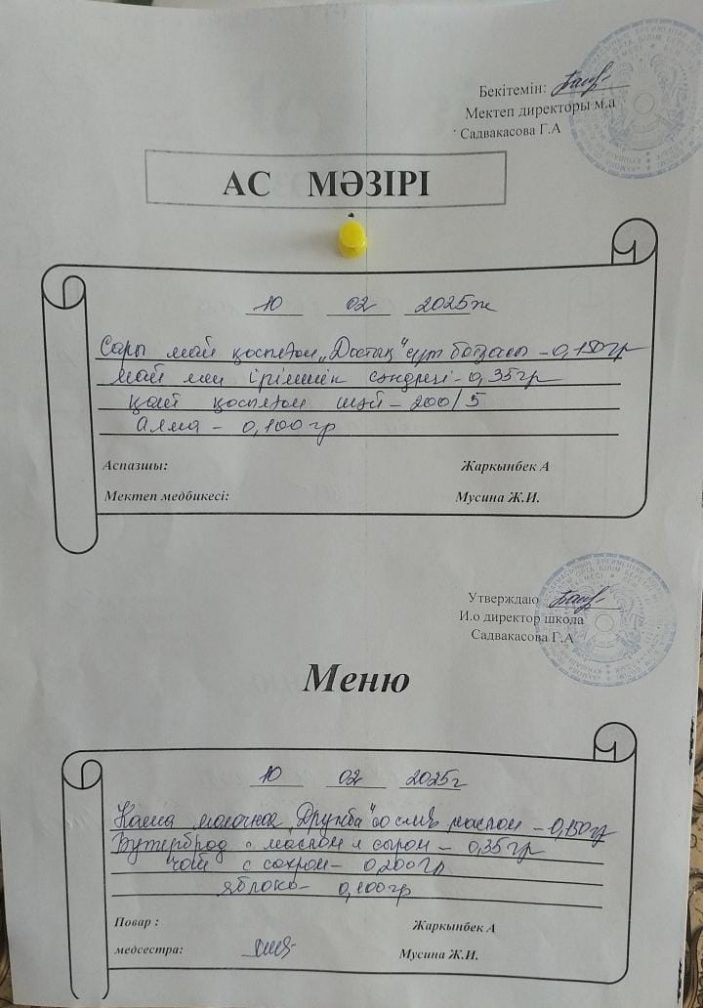 Бекітемін:
Мектеп директоры м.а
Садвакасова Г.А
АС МӘЗІРІ
10 02 2025ж
Сары май қосылған „Достық" сүт ботқасы - 0,150гр
май мен ірімшік сэндвегі - 0,35гр
қант қосылған шәй - 200/5
алма - 0,100гр
Аспазшы: Жаркынбек А
Мектеп медбикесі: Мусина Ж.И.
Утверждаю
И.о директор школа
Садвакасова Г.А
Меню
10 02 2025г
Каша молочная „Дружба" со слив маслом - 0,150гр
Бутерброд с маслом и сыром - 0,35гр
чай с сахром - 0,200гр
яблоко - 0,100гр
Повар : Жаркынбек А
медсестра: Мусина Ж.И.